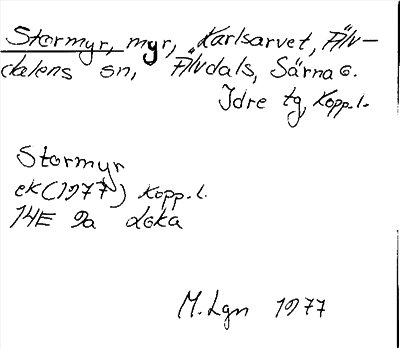 Stormyr, myr, Karlsarvet, Älv-
dalens sn, Älvdals, Särna o.
Idre tg, Kopp.l.
Stormyr
ek (1977) Kopp.l.
14E 9a Loka
M.Lgn 1977